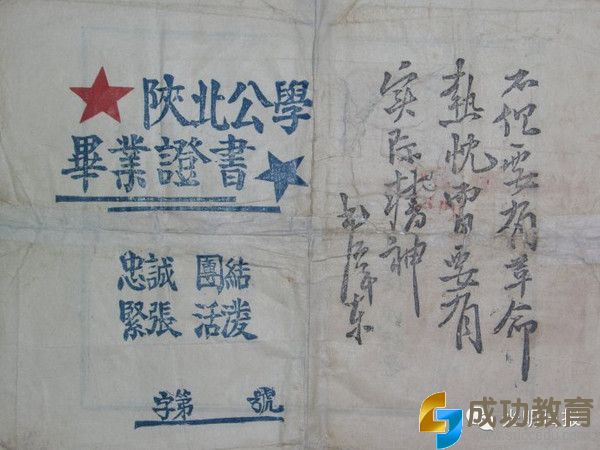 陝北公學
畢業證書
忠誠 團結
緊張 活潑
字第 號
不但要有革命
熱忱要有
实际精神
毛泽东
成功教育